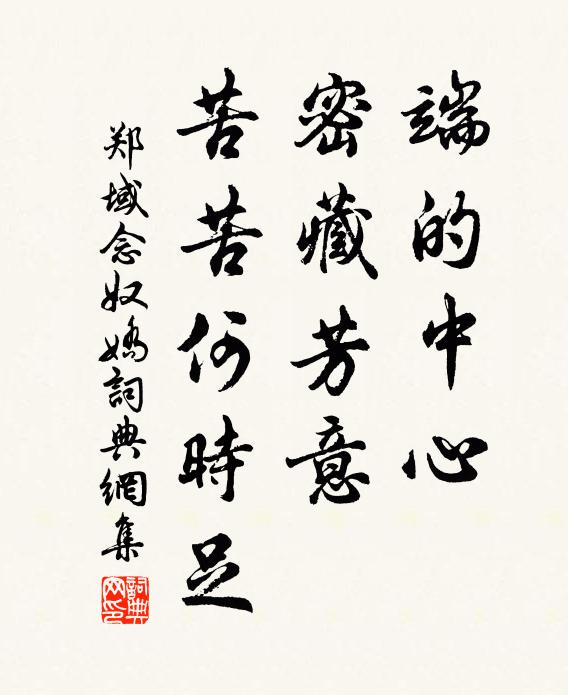 端的中心
密藏芳意
苦苦何時足
郑域念奴嬌詞典網集
詞典网印